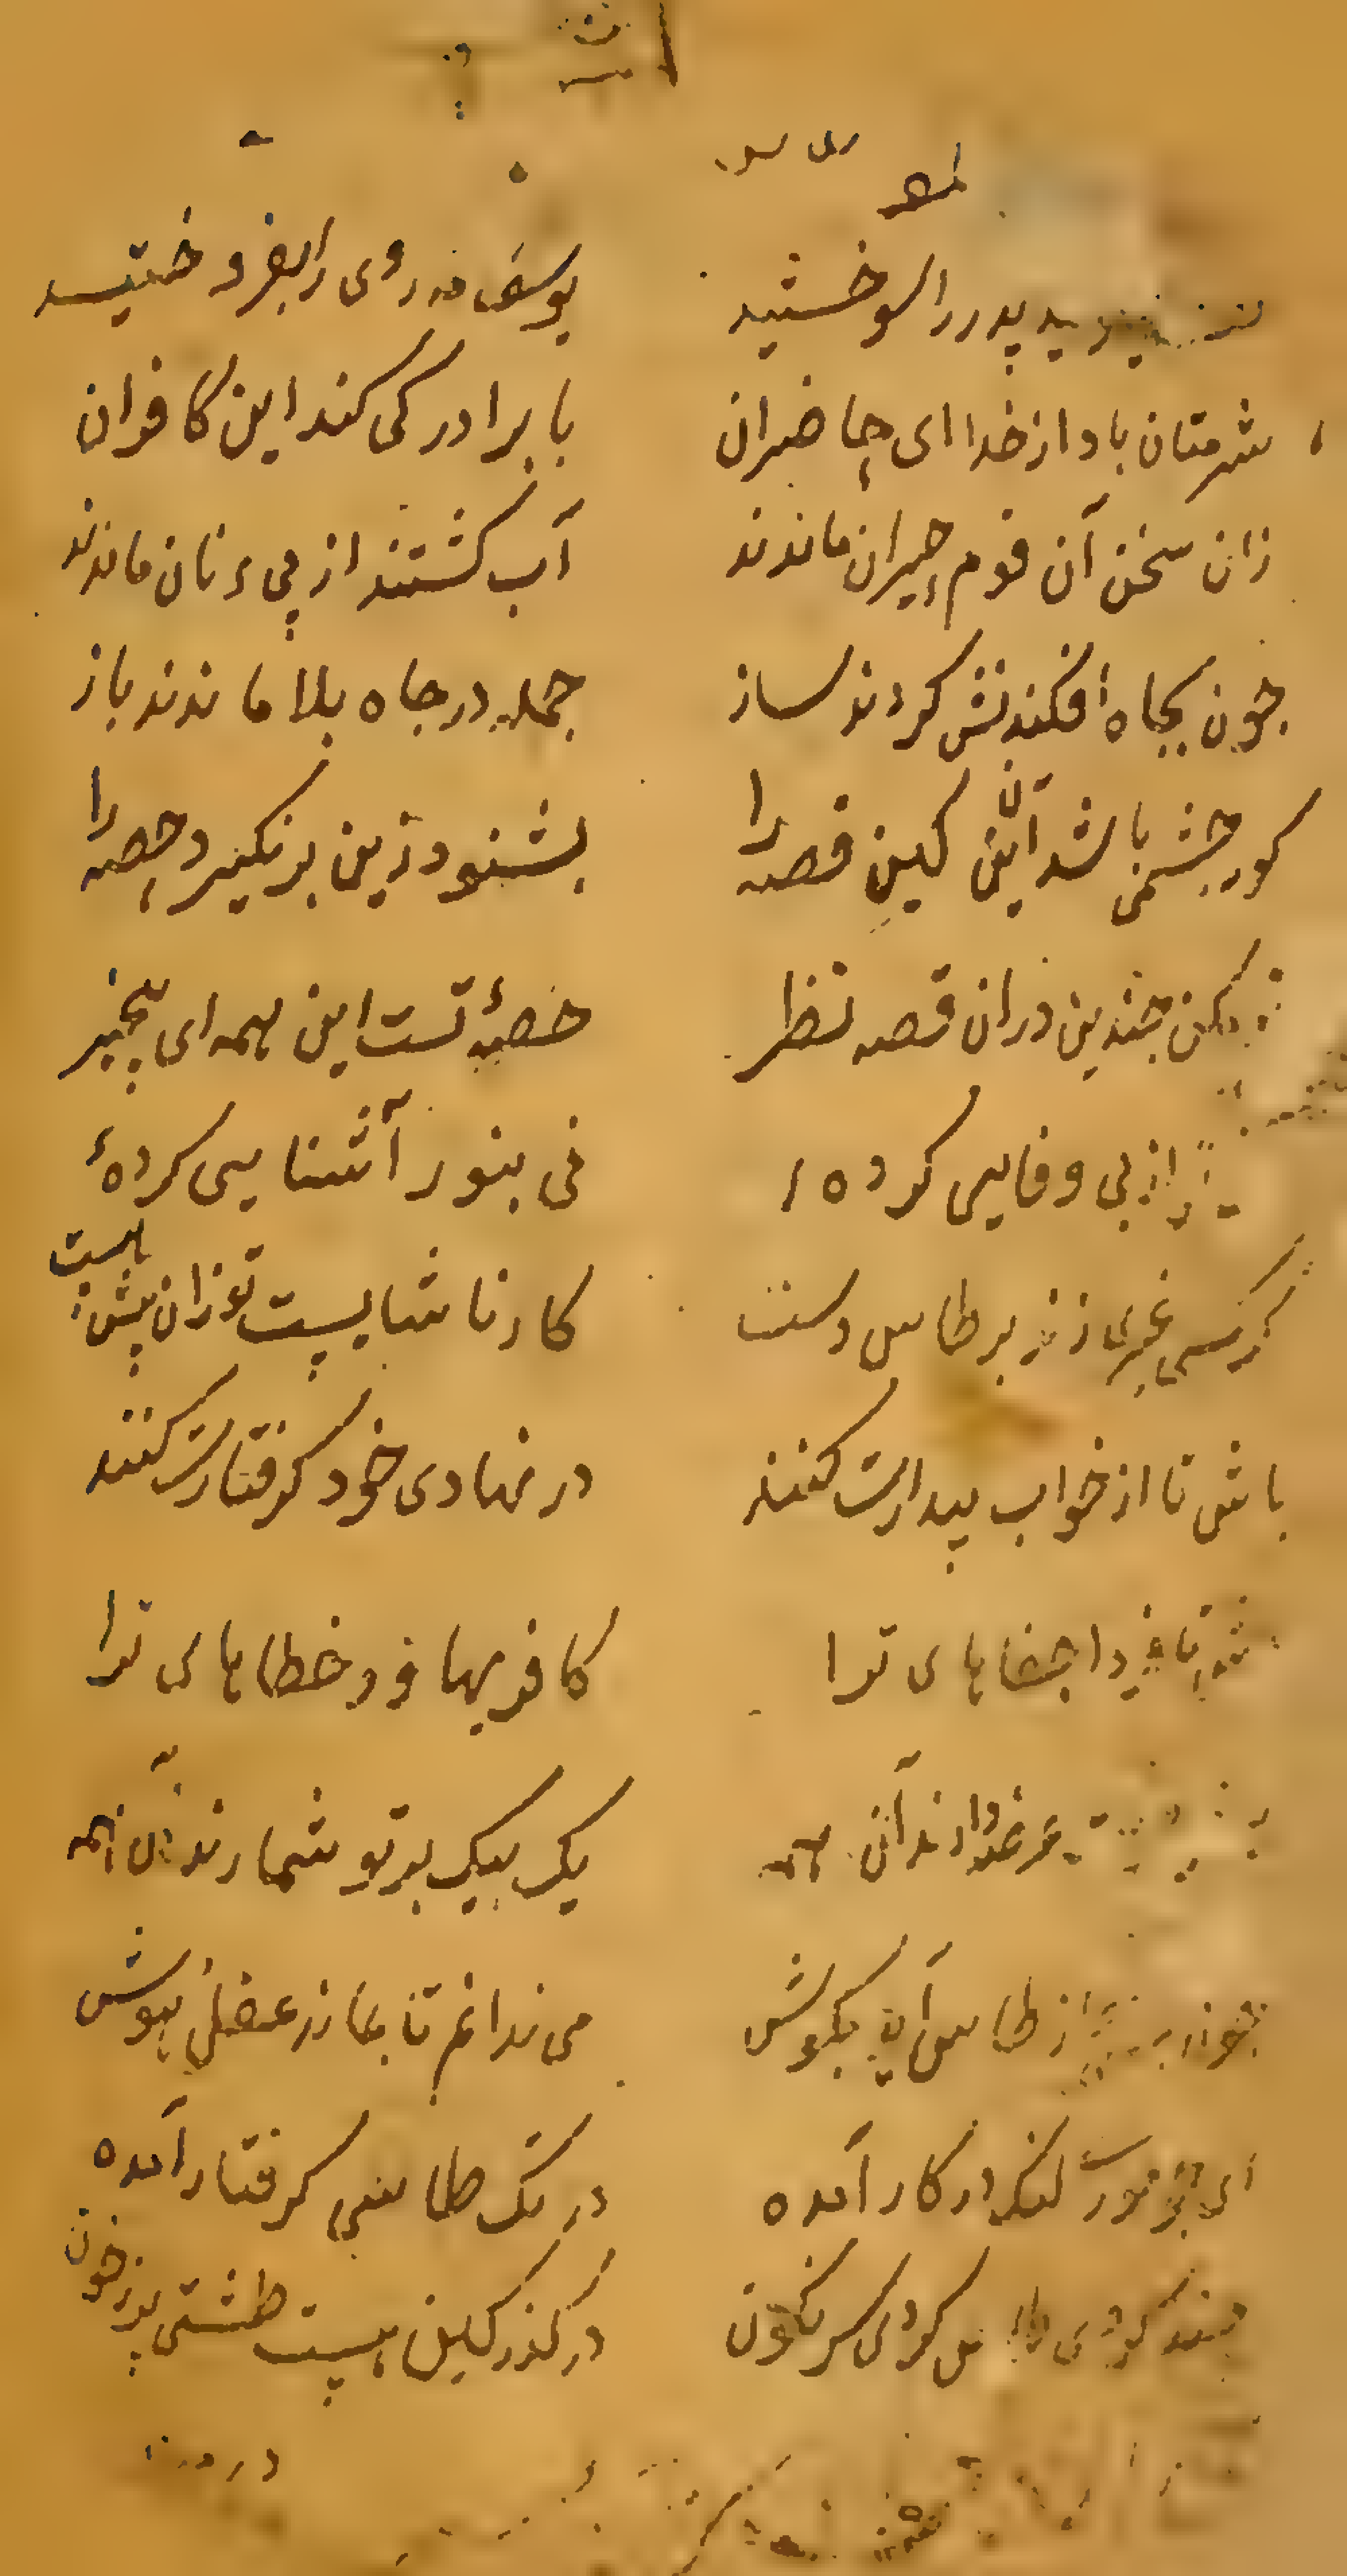 پدر را سوختید یوسف مه روی را بفروختید
شرمتان باد از خدا ای حاضران با برادر کی کند این کافران
زان سخن آن قوم حیران ماندند آب کشتند از پی نان ماندند
چون بچاه افکندنش کردند ساز جمله در چاه بلا ماندند باز
کور چشمی باشد آن کین قصه را بشنود زین بر نکیرد حصه را
مکن چندین دران قصه نظر حصهٔ تست این همه ای بیخبر
از بی وفایی کرده نی بنور آشنایی کردهٔ
کر کسی عمری زند بر طاس دست کار ناشایست تو زان بیش هست
باش تا از خواب بیدارت کنند در نهادی خود کرفتارت کنند
فردا جفاهای ترا کافریها و خطاهای ترا
عرضه دارند آن همه یک بیک بر تو شمارند آن همه
از طاس آید بکوش می ندانم تا بماند عقل و هوش
ای چو موری لنک در کار آمده در تک طاسی کرفتار آمده
چند کردی طاس کردی سر نکون در کذر کین هست طشتی پر ز خون
در